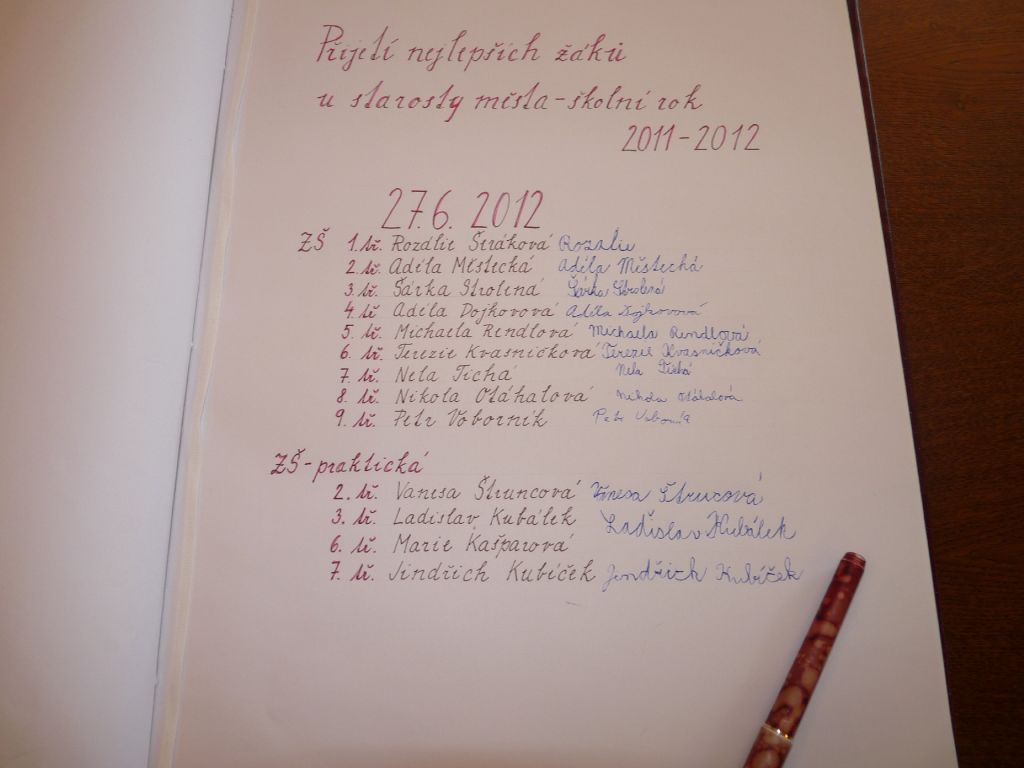 Přijetí nejlepších žáků
u starosty města-školní rok
2011-2012
27.6. 2012
ZŠ 1. tř. Rozálie Širáková Rozalie
2. tř. Adéla Městecká Adéla Městecká
3. tř. Šárka Stolená Šárka
4. tř. Adéla Dojkovová Adéla Dojkovová
5. tř. Michaela Rendlová Michaela Rendlová
6. tř. Terezie Kvasničková Terezie Kvasničková
7. tř. Nela Tichá Nela Tichá
8. tř. Nikola Otáhalová Nikola Otáhalová
9. tř. Petr Voborník Petr Voborník
ZŠ-praktická
2. tř. Vanesa Štruncová Vanesa
3. tř. Ladislav Kubálek Ladislav Kubálek
6. tř. Marie Kašparová
7. tř. Jindřich Kubíček Jindřich Kubíček